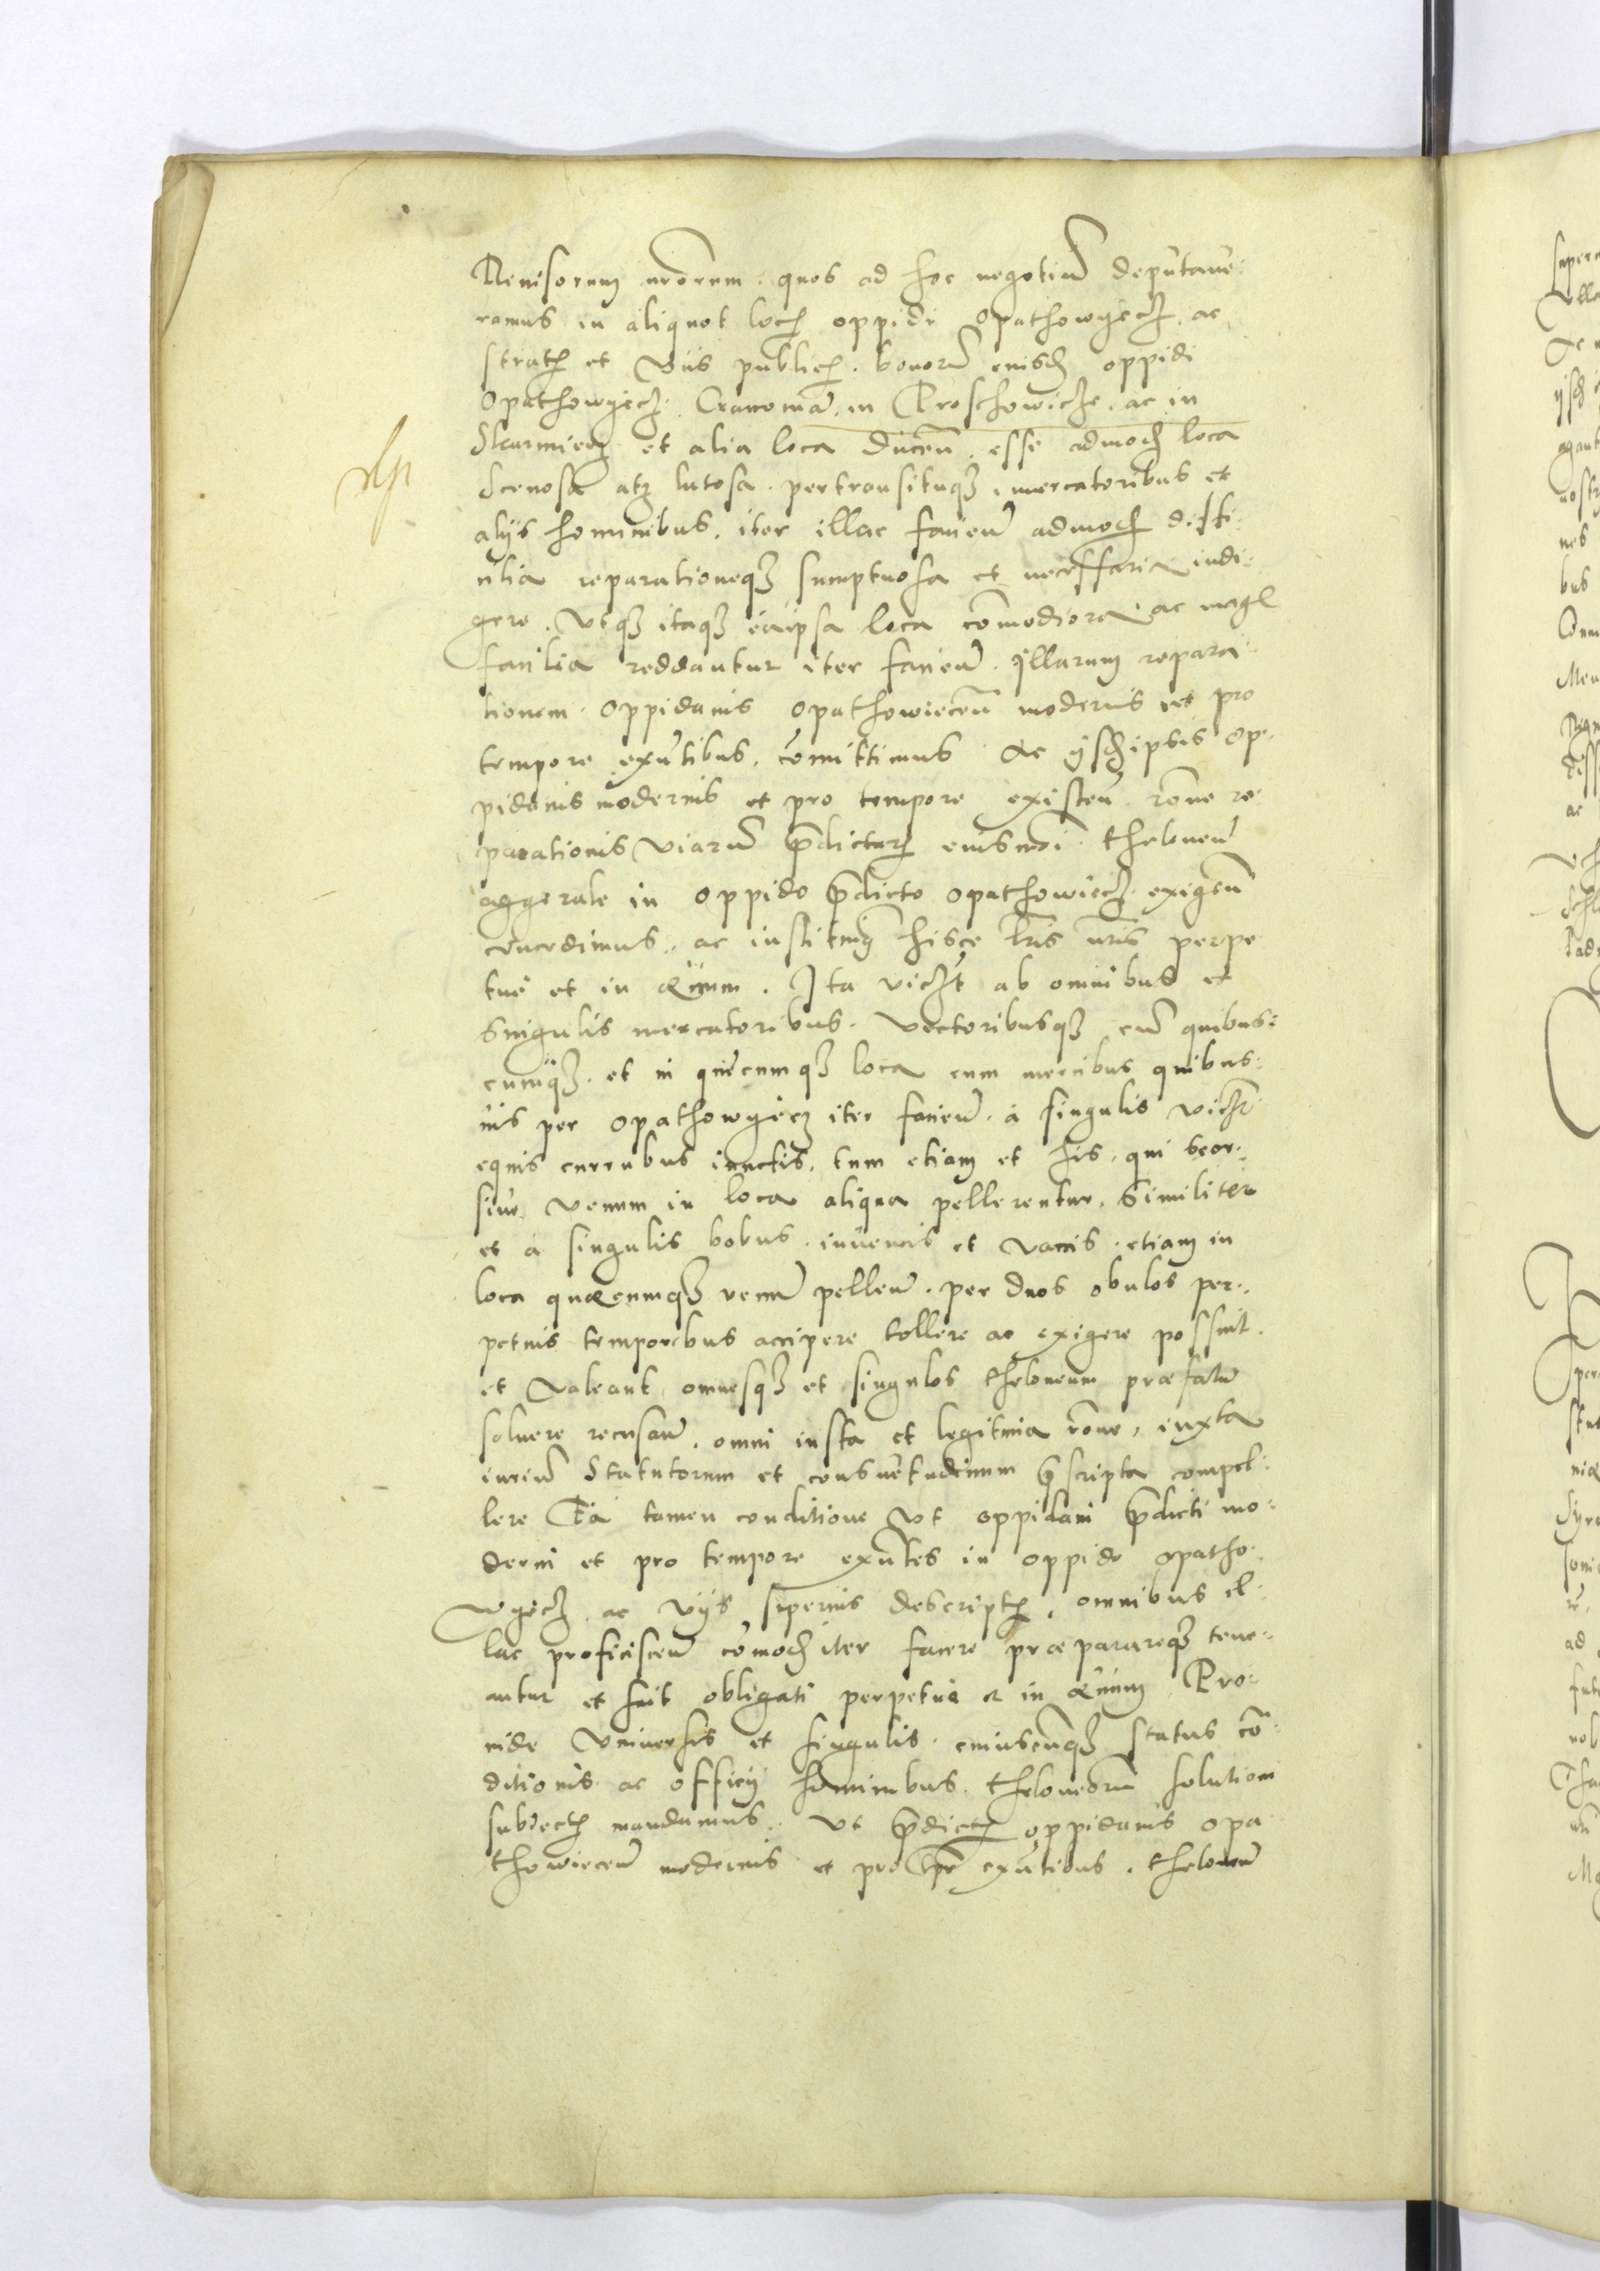 Reuisorum nr̄orum. quos ad hoc negotiū deputaue-
ramus in aliquot locꝭ oppidi Opathowyecz. ac
stratꝭ et viis publicꝭ. bonorū eiusdꝫ oppidi
Opathowyecz. Cracouiā. in Proschowicze. ac in
Skarmierz et alia loca ducen̄. esse admodꝫ loca
Scenosa atqꝫ lutosa. pertransituqꝫ. mercatoribus et
alijs hominibus. iter illac facien̄ admodꝫ diffi-
cilia reparationeqꝫ sumptuosa et necessaria indi-
gere. Vtqꝫ itaqꝫ eaipsa loca com̄odiora ac magꝭ
facilia reddantur iter facien̄. Illarum repara-
tionem Oppidanis Opathowiecen̄ modernis et pro
tempore exn̄tibus. com̄ittimus Ac ijsdꝫ ipsis Op-
pidanis modernis et pro tempore existen̄. ror̄ne re-
parationis viarū p̄dictarꝭ eiusmōi theloneū
aggerale in oppido p̄dicto Opathowiecz exigen̄
concedimus. ac instituimꝰ hisce lr̄is nr̄is perpe
tuè et in æuum. Ita vidꝫt ab omnibus et
singulis mercatoribus. vectoribusqꝫ cū quibus-
cumqꝫ. et in quæcumqꝫ loca cum mercibus quibus-
uis per Opathowyecz iter facien̄. à singulis vidꝫt
equis curribus iunctis. tum etiam et his. qui seor-
siue venum in loca aliqua pellerentur. Similiter
et à singulis bobus. iuuencis et vaccis. etiam in
loca quæcumqꝫ venū pellen̄. per duos obulos per-
petuis temporibus accipere tollere ac exigere possint.
et valeant omnesqꝫ et singulos theloneum præfatū
soluere recusan̄. omni iusta et legitima rōne, iuxta
iuriū Statutorum et consuetudinum p̄scripta compel-
lere Ea tamen conditione Vt oppidani p̄dicti mo-
derni et pro tempore exn̄tes in oppido Opatho-
wyecz ac vijs superius descriptꝭ. omnibus il-
lac proficiscen̄ com̄odꝫ iter facere præparareqꝫ tene-
antur et sint obligati perpetuè et in æuum Pro-
inde Vniuersis et singulis. cuiuscūqꝫ status cō-
ditionis ac officij hominibus. theloneorū solutioni
subiectꝭ mandamus. Vt p̄dictꝭ oppidanis Opa
thowiecen̄ modernis et pro tp̄re exn̄tibus. theloneū